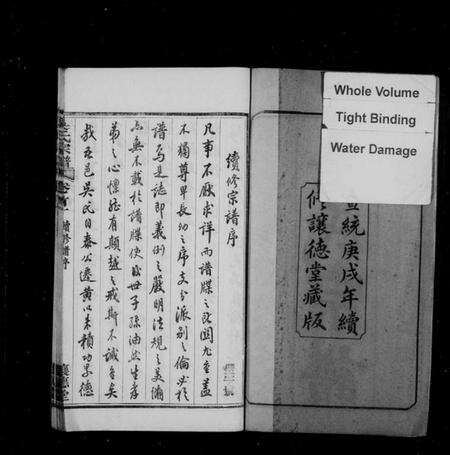 Whole Volume
Tight Binding
Water Damage
宣統庚戌年續
修讓德堂藏版
續修宗譜序
凡事不厭求詳而譜牒之攸關尤重蓋
不獨尊卑長幼之序支分派別之倫必於
譜焉是誌即義例之嚴明法規之美備
亦無不載於譜牒使後世子孫油然生孝
弟之心懍然有顛越之戒斯不誠善矣
哉吾邑吳氏自泰公遷黄以来積功累德
吳氏宗譜
卷首
續修譜序
讓德堂